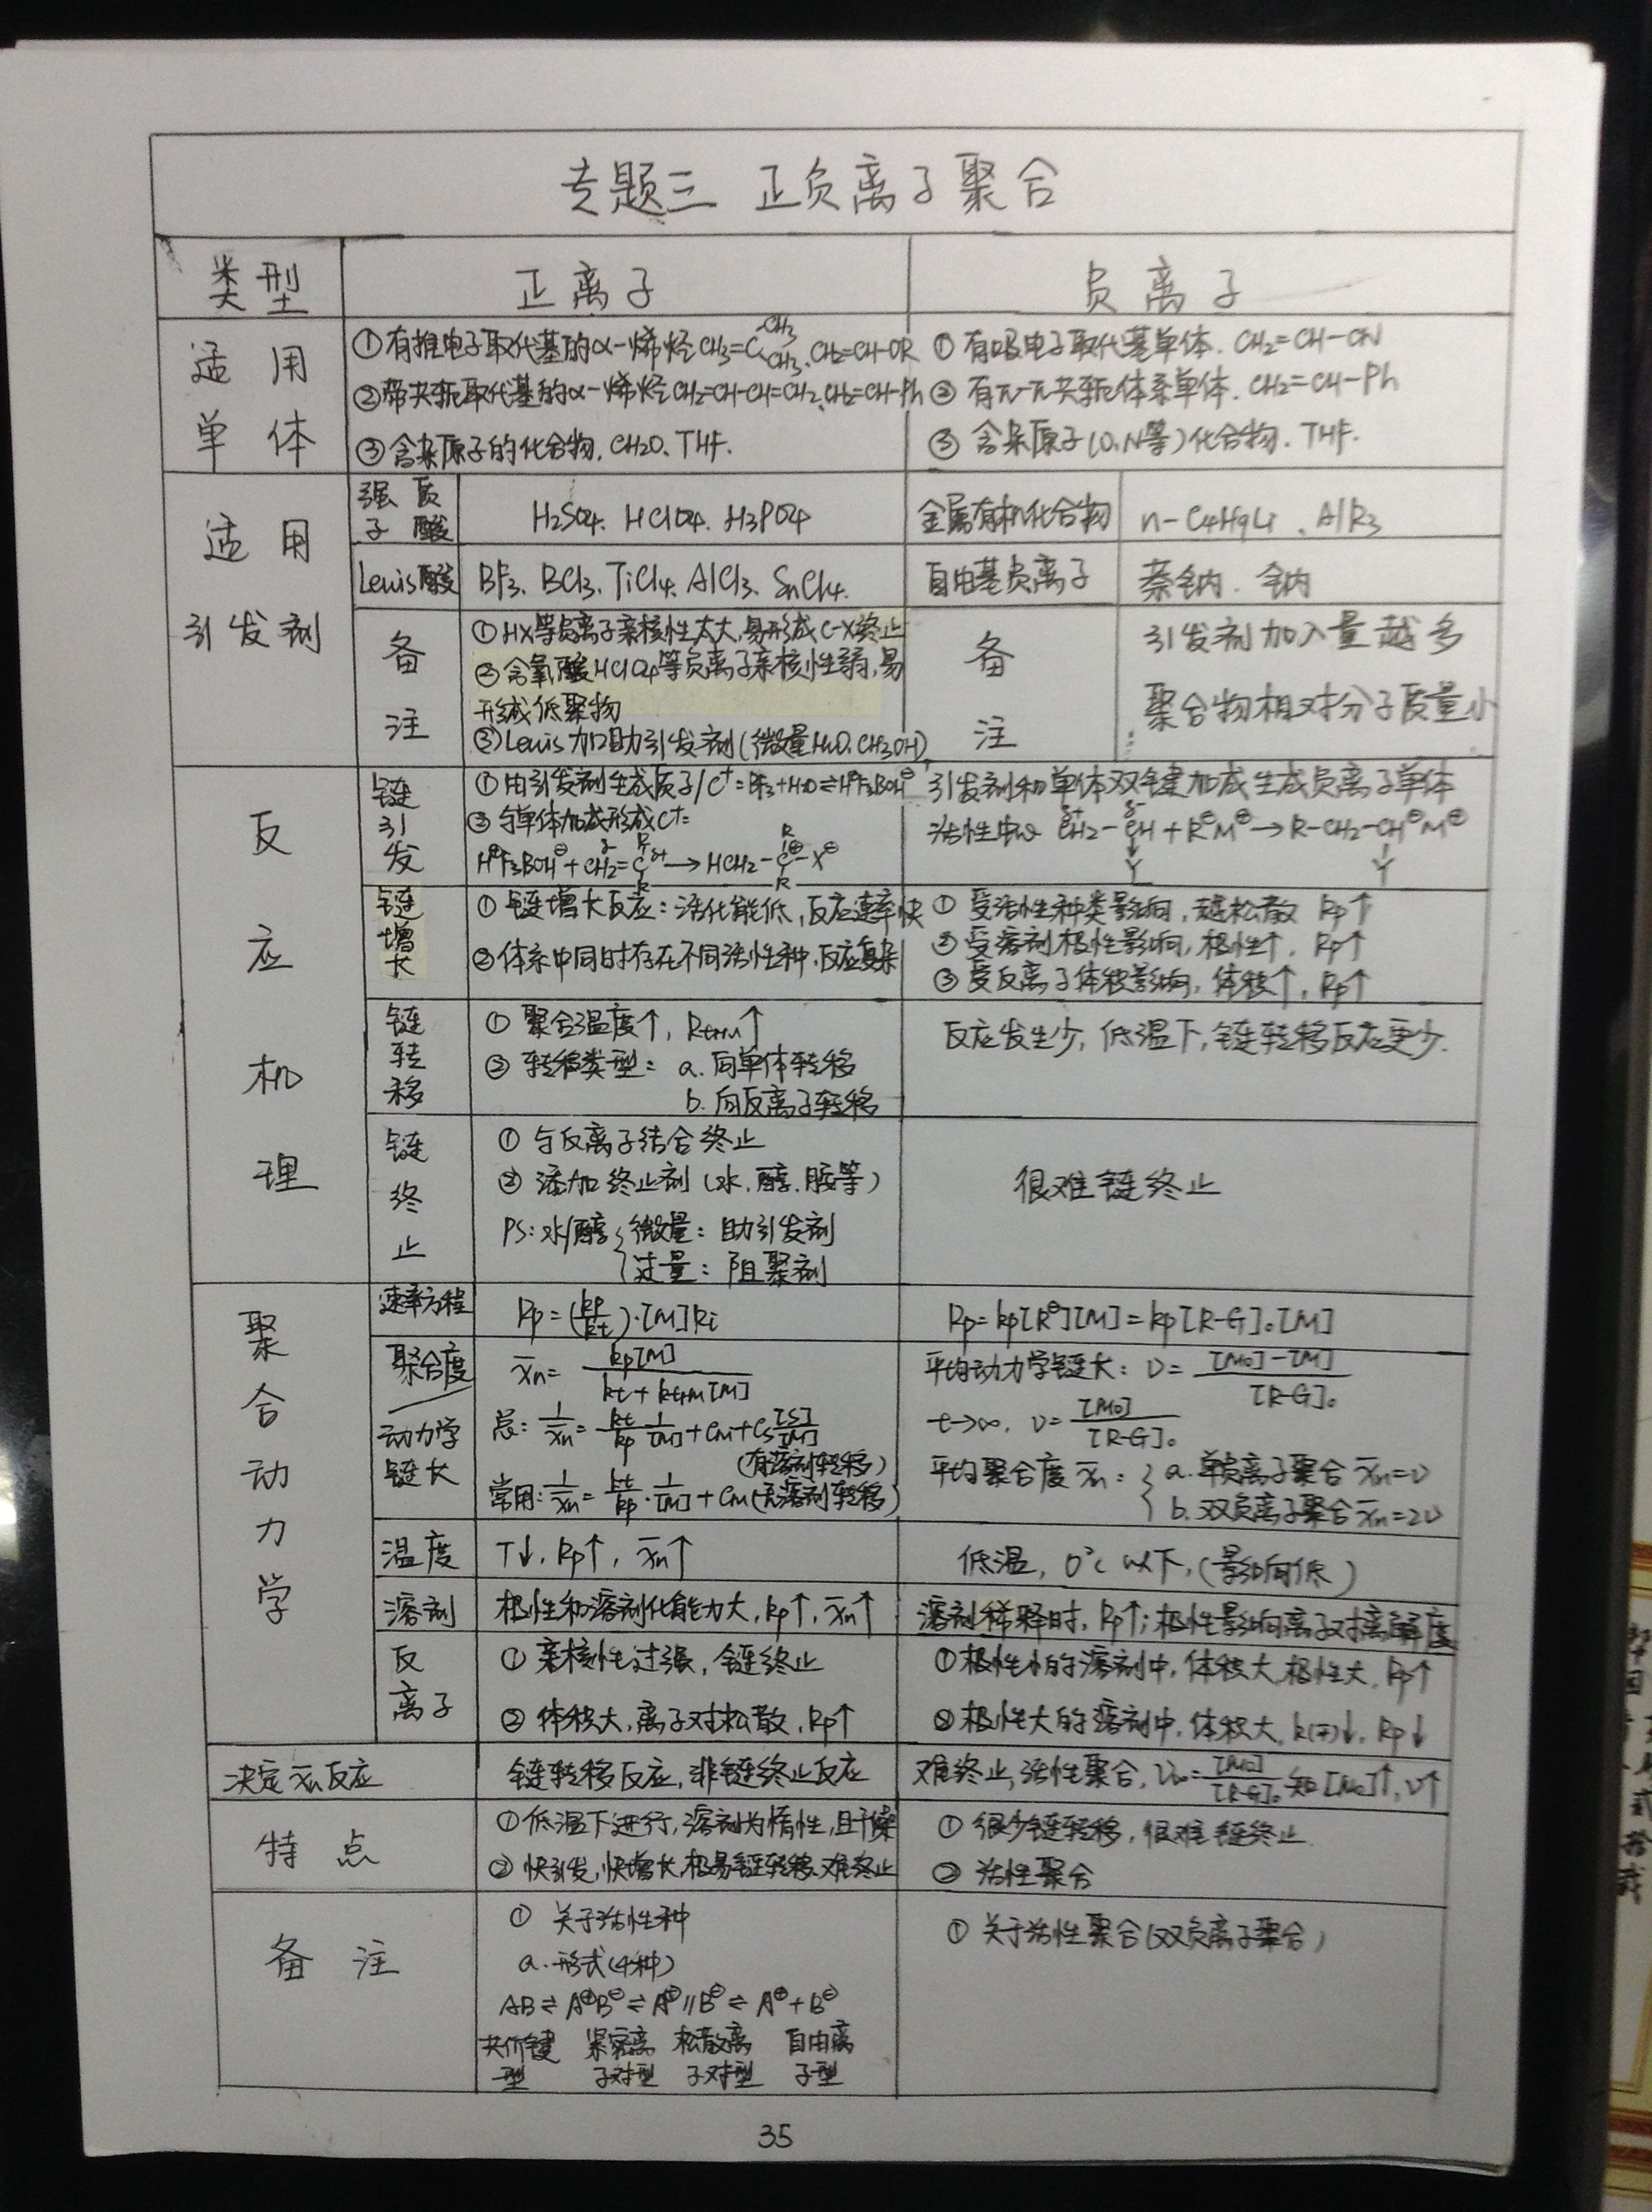 专题三 正负离子聚合
类型 正离子 负离子
适用单体
①有推电子取代基的α-烯烃 CH3=C<CH3 CH3、CH2=CH-OR
②带共轭取代基的α-烯烃 CH2=CH-CH=CH2、CH2=CH-Ph
③含杂原子的化合物, CH2O、THF.
①有吸电子取代基单体. CH2=CH-CN
②有π-π共轭体系单体. CH2=CH-Ph
③含杂原子(O、N等)化合物. THF.
适用引发剂
强质子酸 H2SO4. HClO4. H3PO4
金属有机化合物 n-C4H9Li、AlR3
Lewis酸 BF3、BCl3、TiCl4、AlCl3、SnCl4.
自由基负离子 萘钠. 钠
备注
①HX等负离子亲核性太大,易形成C-X终止
②含氧酸HClO4等负离子亲核性弱,易
形成低聚物
③Lewis加助引发剂(微量H2O、CH3OH)
备注
引发剂加入量越多
聚合物相对分子质量小
反应机理
链引发
①由引发剂生成质子/C⁺: BF3+H2O⇌H⊕F3BOH⊖
②与单体加成形成C⁺:
H⊕F3BOH⊖+CH2=C(R)(R)→HCH2-C⊕(R)(R)-X⊖
引发剂和单体双键加成生成负离子单体
活性中心 CH2-CH(Y)+R⊖M⊕→R-CH2-CH⊖M⊕(Y)
链增长
①链增长反应:活化能低,反应速率快
②体系中同时存在不同活性种,反应复杂
①受活性种类影响,越松散 Rp↑
②受溶剂极性影响,极性↑, Rp↑
③受反离子体积影响,体积↑, Rp↑
链转移
①聚合温度↑, Rtrm↑
②转移类型: a.向单体转移
b.向反离子转移
反应发生少,低温下,链转移反应更少.
链终止
①与反离子结合终止
②添加终止剂(水、醇、胺等)
PS:水/醇{微量:助引发剂
过量:阻聚剂
很难链终止
聚合动力学
速率方程 Rp=(kp/kt)·[M]Ri
Rp=kp[R⊖][M]=kp[R-G]₀[M]
聚合度/动力学链长
x̄n=kp[M]/(kt+ktrM[M])
总: 1/x̄n=kt/kp 1/[M]+CM+Cs[S]/[M]
(有溶剂转移)
常用: 1/x̄n=kt/kp·1/[M]+CM(无溶剂转移)
平均动力学链长: ν=([M0]-[M])/[R-G]₀
t→∞, ν=[M0]/[R-G]₀
平均聚合度x̄n: {a.单负离子聚合x̄n=ν
b.双负离子聚合x̄n=2ν
温度 T↓, Rp↑, x̄n↑
低温, 0℃以下,(影响低)
溶剂 极性和溶剂化能力大, Rp↑, x̄n↑
溶剂稀释时, Rp↑;极性影响离子对离解度
反离子
①亲核性过强,链终止
②体积大,离子对松散, Rp↑
①极性小的溶剂中,体积大,极性大, Rp↑
②极性大的溶剂中,体积大, k(∓)↓, Rp↓
决定x̄n反应 链转移反应,非链终止反应
难终止,活性聚合, ν∞=[M0]/[R-G]₀ 知[M0]↑,ν↑
特点
①低温下进行,溶剂为惰性,且干燥
②快引发,快增长,极易链转移,难终止
①很少链转移,很难链终止.
②活性聚合
备注
①关于活性种
a.形式(4种)
AB⇌A⊕B⊖⇌A⊕//B⊖⇌A⊕+B⊖
共价键型 紧密离子对型 松散离子对型 自由离子型
①关于活性聚合(双负离子聚合)
35